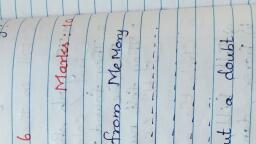 6
Marks: 10
from MeMory
ut a doubt.